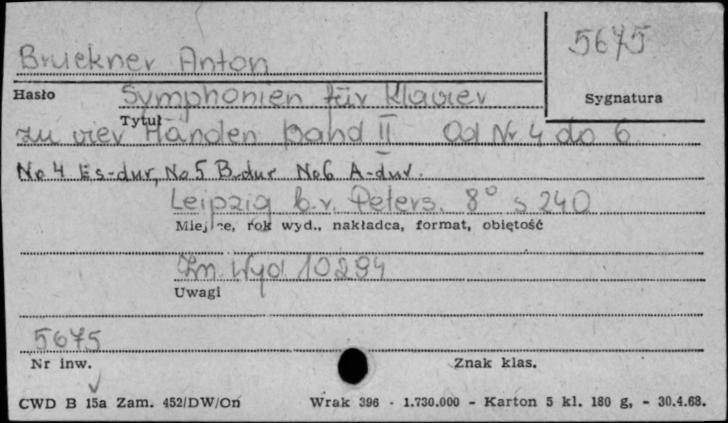 Bruckner Anton
5675
Hasło
Sygnatura
Symphonien für Klavier
Tytuł
zu vier Händen Band II Od Nr 4 do 6
No 4 Es-dur, No 5 B-dur No 6 A-dur.
Leipzig b.r. Peters. 8° s 240
Miejsce, rok wyd., nakładca, format, obiętość
Zn. Wyd. 10294
Uwagi
5675
Nr inw.
Znak klas.
CWD B 15a Zam. 452/DW/On Wrak 396 - 1.730.000 - Karton 5 kl. 180 g, - 30.4.68.